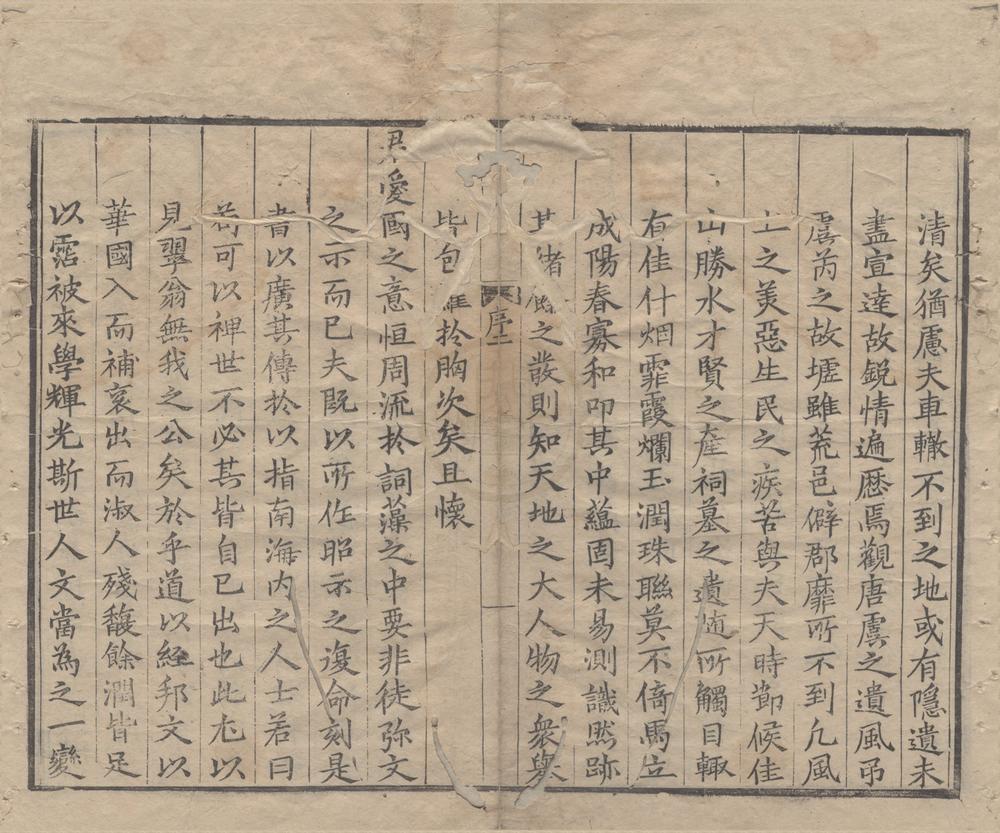 清矣猶慮夫車轍不到之地或有隱遺未
盡宣達故銳情遍歷焉觀唐虞之遺風吊
虞芮之故墟雖荒邑僻郡靡所不到凢風
土之美惡生民之疾苦與夫天時節候佳
山勝水才賢之産祠墓之遺随所觸目輙
有佳什烟霏霞爛玉潤珠聯莫不倚馬立
成陽春寡和叩其中蘊固未易測識然跡
其緒餘之𤼵則知天地之大人物之衆舉
序二
皆包羅扵胸次矣且懷
君愛國之意恒周流扵詞藻之中要非徒弥文
之示而已夫既以所作昭示之復命刻是
書以廣其傳扵以指南海内之人士若曰
苟可以裨世不必其皆自已出也此尤以
見翠翁無我之公矣於乎道以經邦文以
華國入而補衮出而淑人殘馥餘潤皆足
以霑被來學輝光斯世人文當為之一變